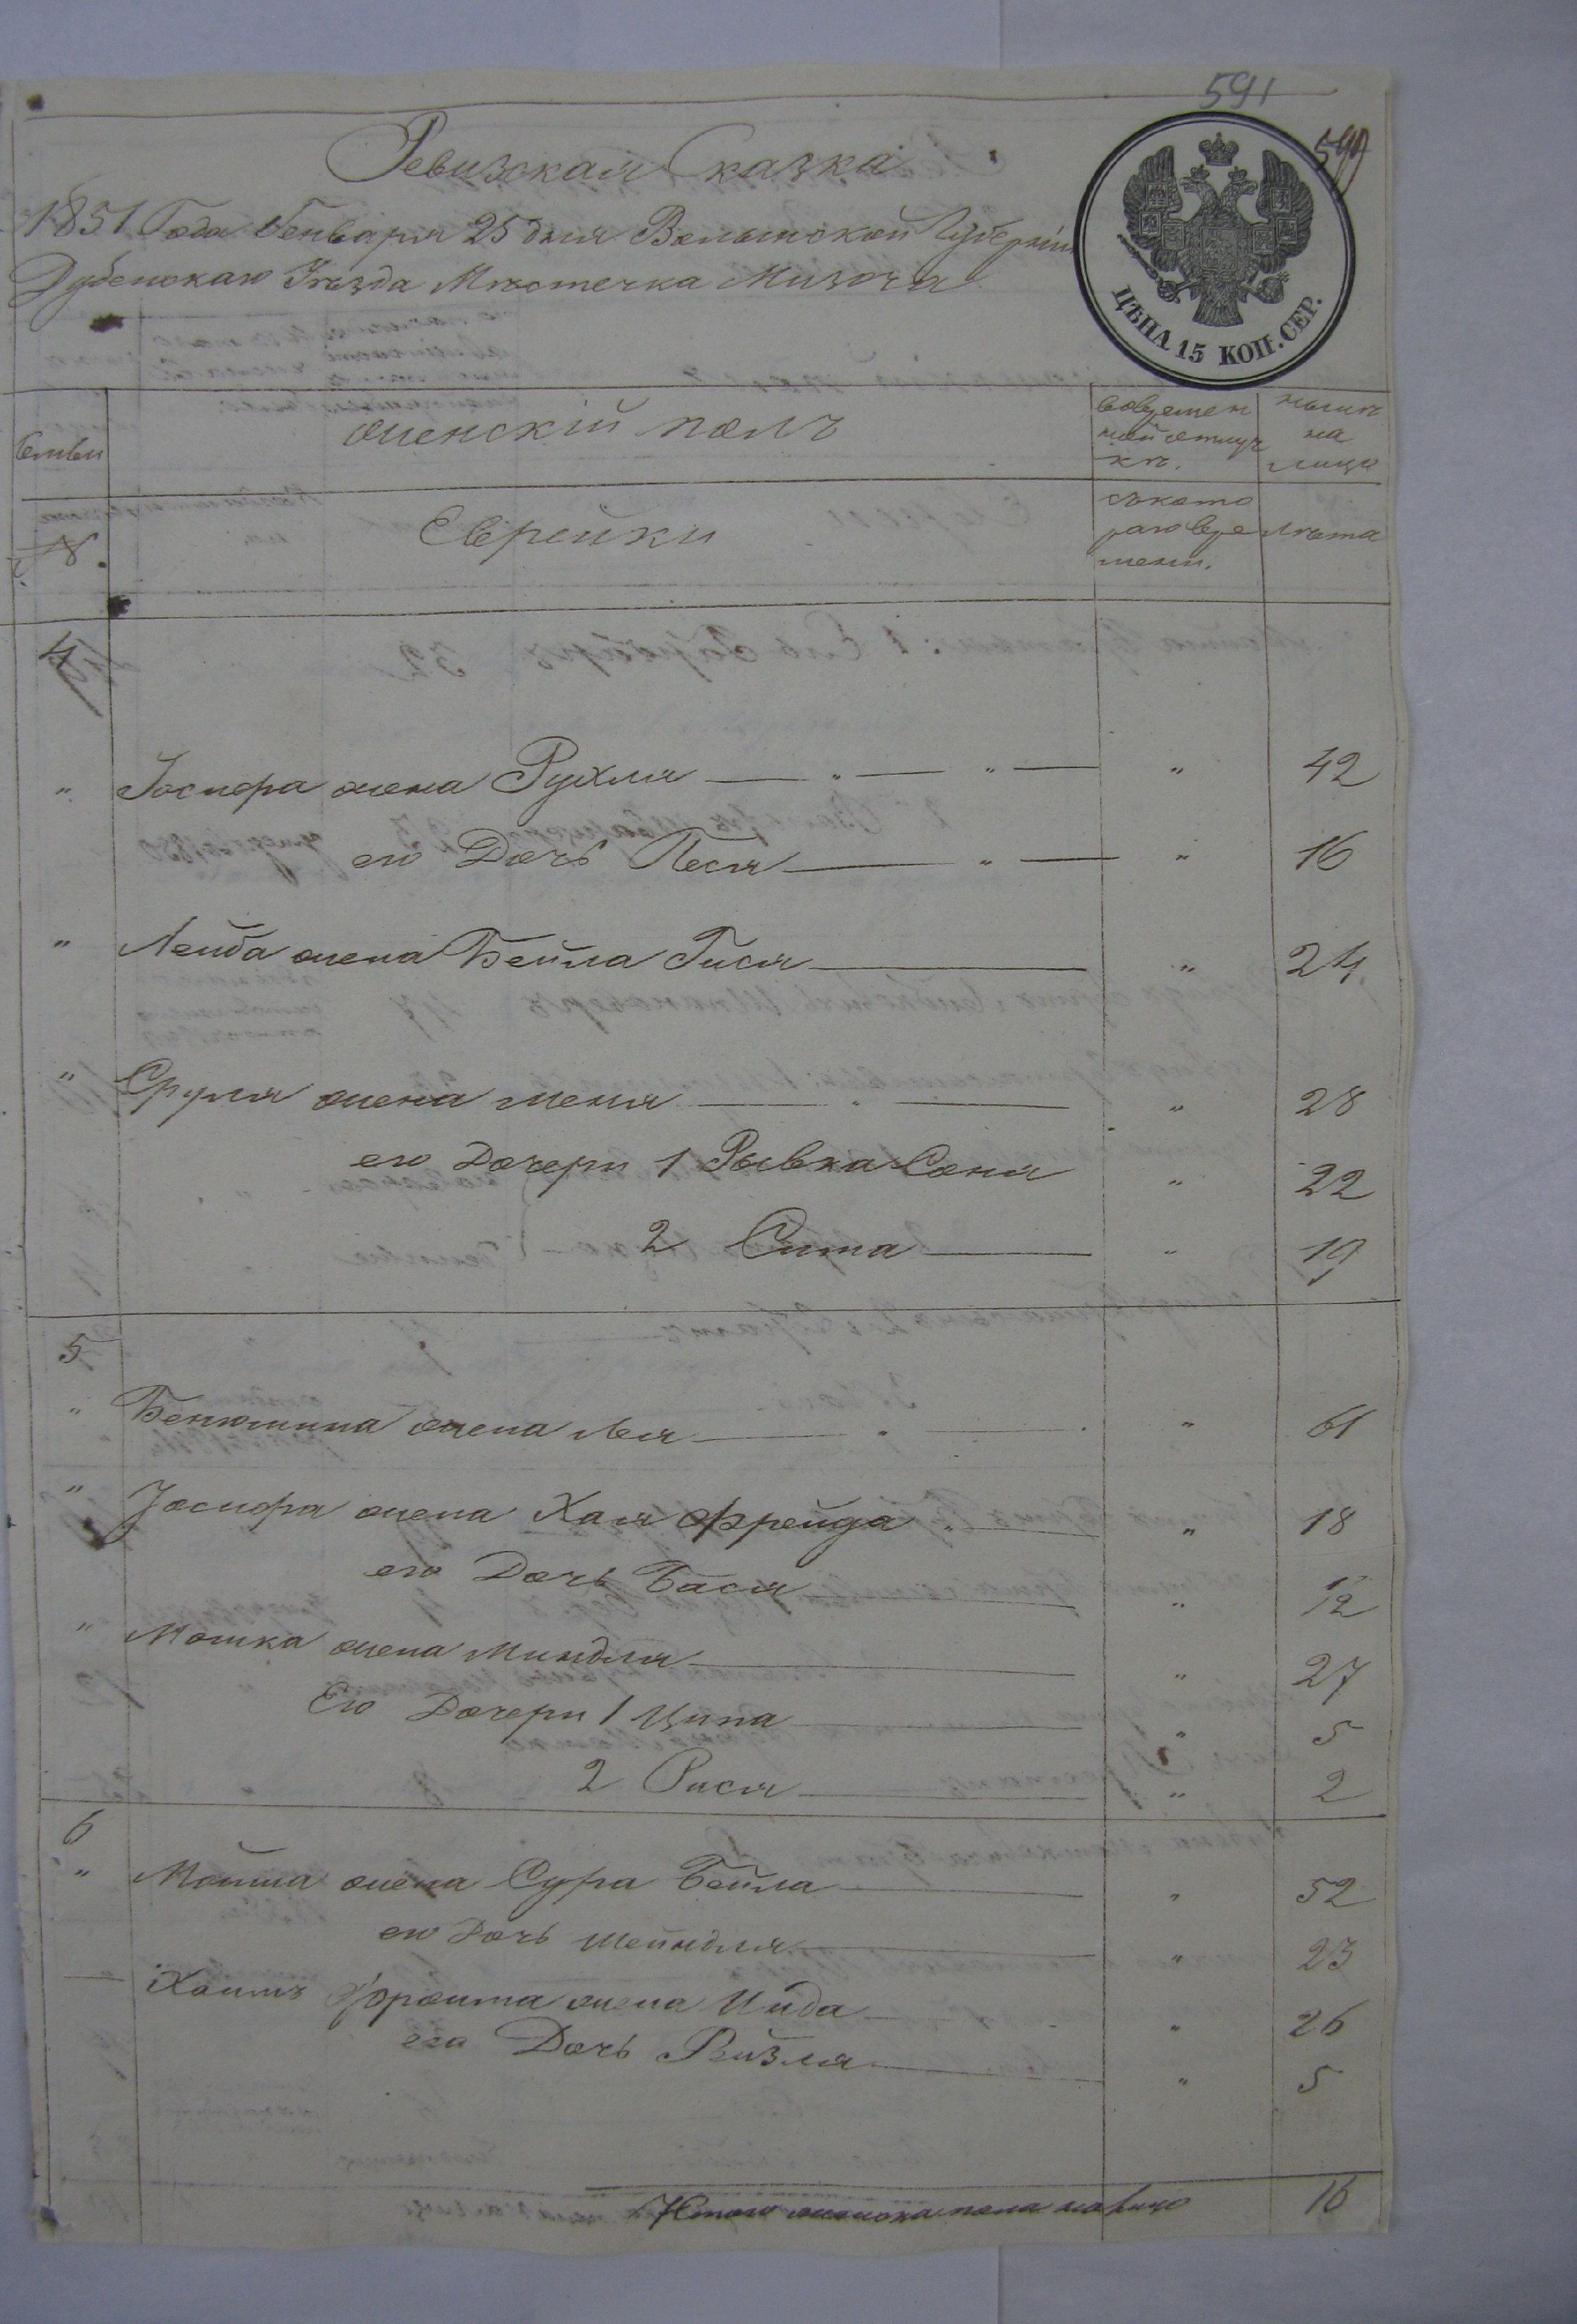 591
590
Ревизская Сказка
1851 Года Генваря 25 дня Волынской Губерніи
Дубенскаго Уѣзда Мѣстечка Мизоча
ЦѢНА 15 КОП. СЕР.
женскій полъ
вовремен
ной отлуч
кѣ.
нынѣ
на
лицо
семьи
№.
Еврейки
съкото
раго вре
мени.
лѣта
4
" Іосифра жена Рухля — " — " — " 42
его Дочь Песя — " — " 16
" Лейба жена Бейла Гися — " 24
" Сруля жена Меня — " — " 28
его Дочери 1 Рывка Соня " 22
2 Сима — " 19
5
" Бенюмина жена Лея — " — " 61
" Іосифра жена Хая Фрейда " — " 18
его Дочь Бася — " 12
" Мошка жена Миндля — " 27
Его Дочери 1 Ципа — " 5
2 Рися — " 2
6
" Мойша жена Сура Бейла — " 52
его Дочь Шейндля — " 23
— Хаимъ Фроима жена Инда — " 26
его Дочь Рийзля — " 5
Итого женска пола налицо 16